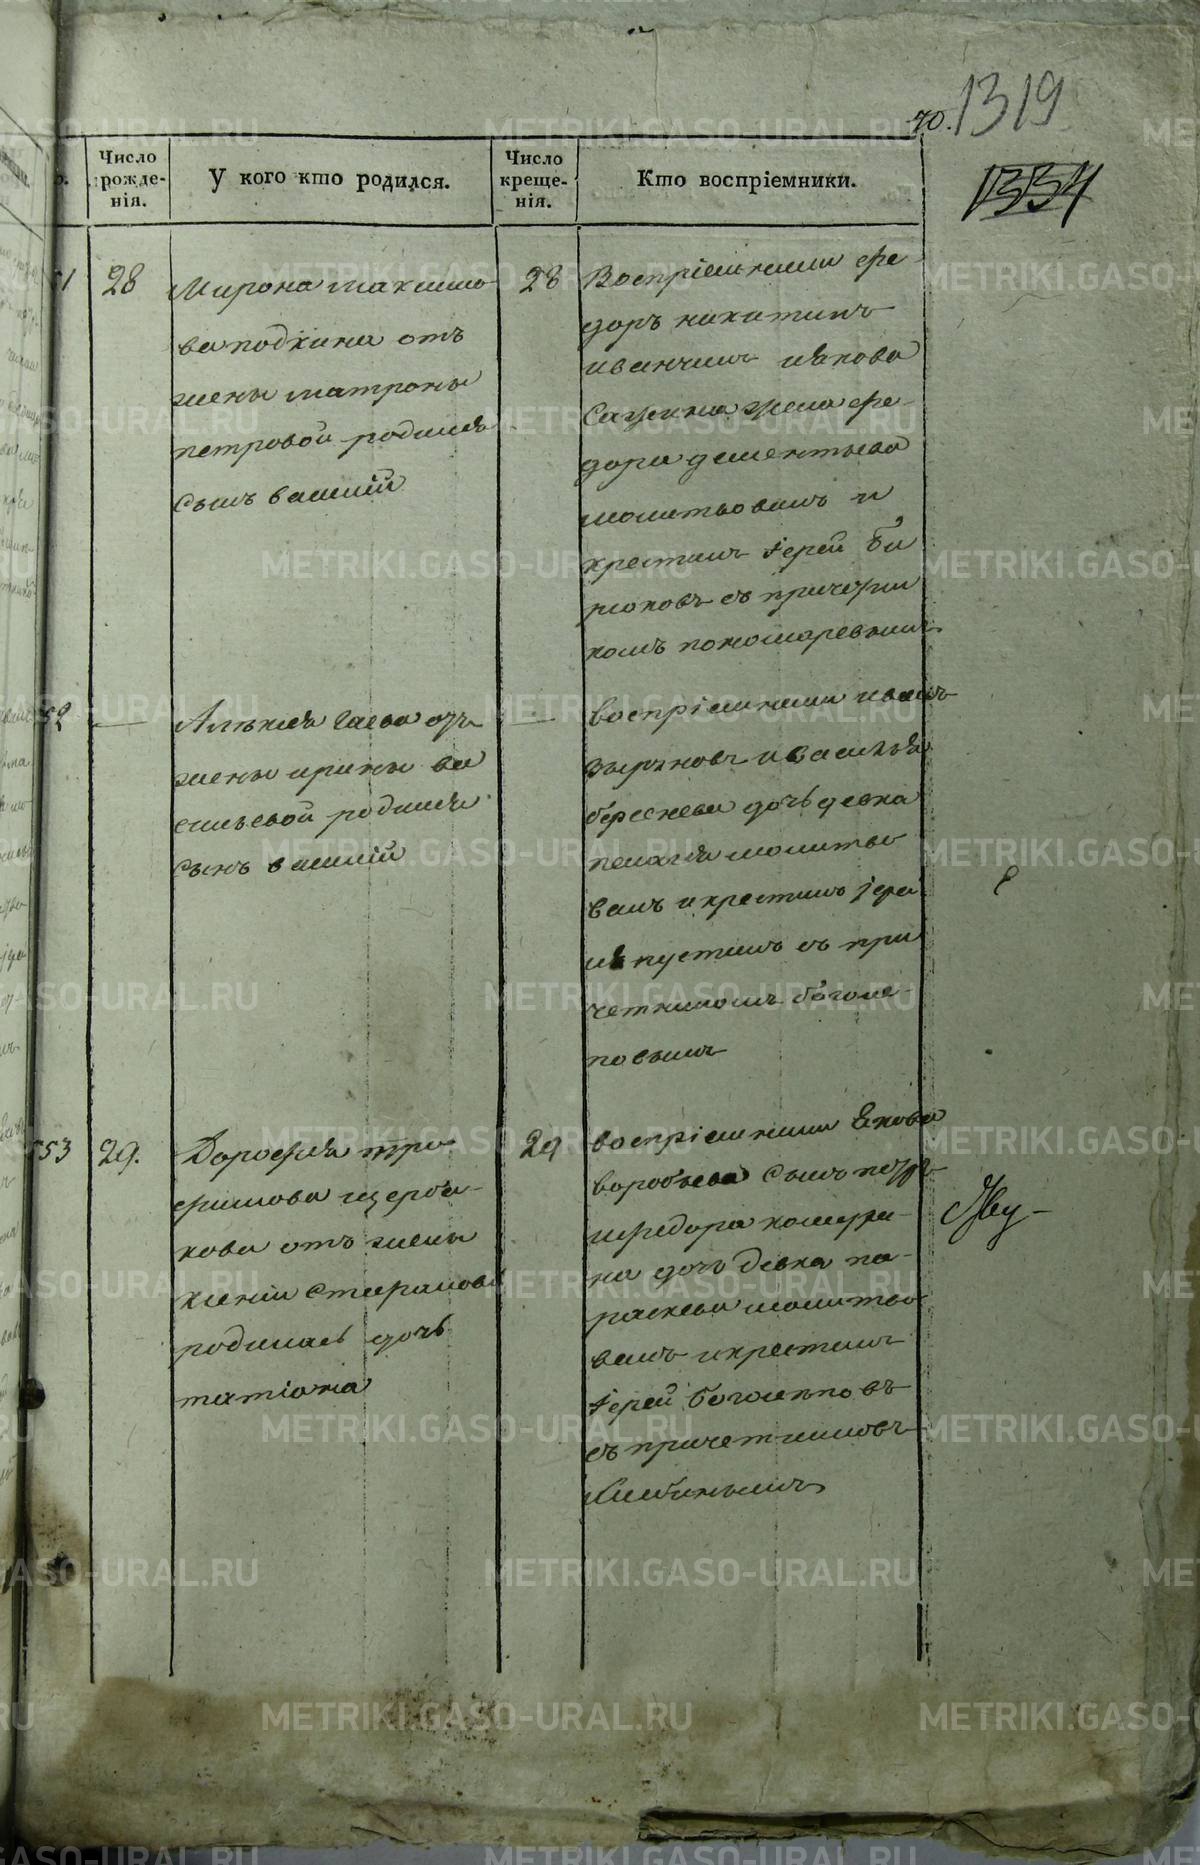 70. 1319
1334
Число рожде- нія.
У кого кто родился.
Число креще- нія.
Кто воспріемники.
51 28
Мирона максимо
ва подкина отъ
жены матроны
петровой родился
сынъ василій
28
Воспріемники фе
доръ никитинъ
иванчин иякова
Сажина жена фе-
дора дементьева
молитвовалъ и
крестилъ іерей би
рюковъ съ причетни
комъ пономаревымъ
52 —
Алексѣя гаева отъ
жены ирины ва
сильевой родился
сынъ василій
—
воспріемники иванъ
зыряновъ и василья
береснева дочь девка
пелагия молитво
валъ и крестилъ іере
й пустинъ съ при
четникомъ боголе-
повымъ
553 29.
Дорофея тро-
фимова щерба-
кова отъ жены
ксеніи стефановой
родилась дочь
татіана
29
воспріемники Якова
воробьева сынъ петръ
ифедора комери-
на дочь девка па-
раскева молитво
валъ икрестилъ
іерей боголеповъ
съ причетникомъ
METRIKI.GASO-URAL.RU